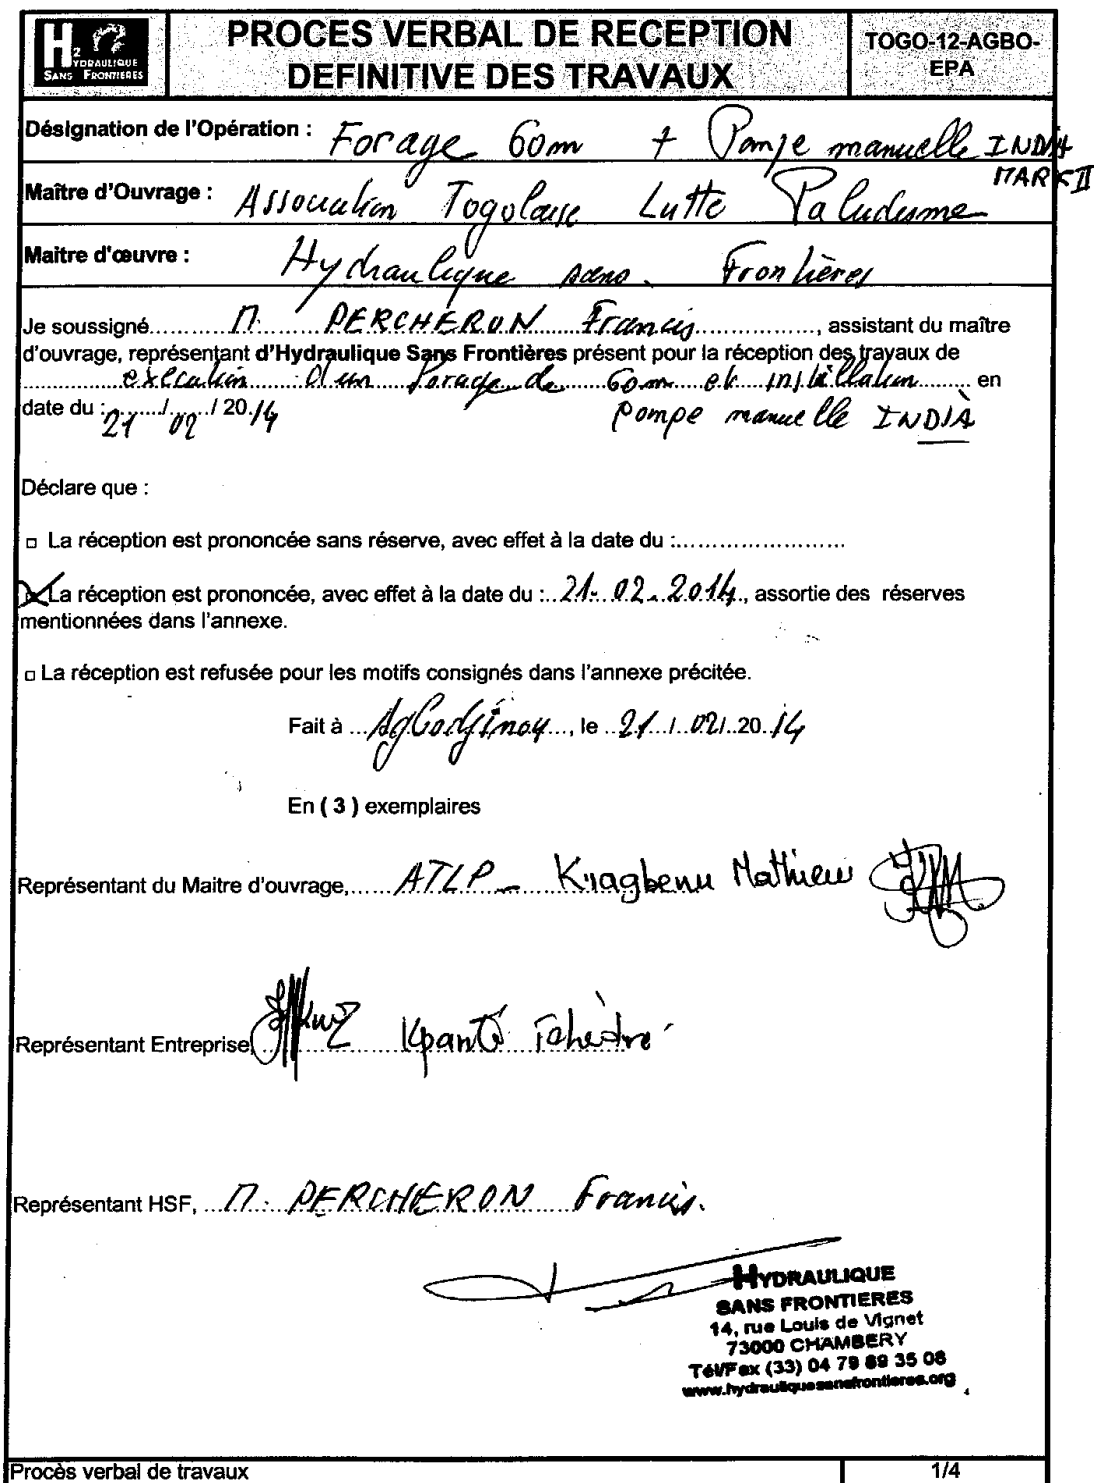 H2YDRAULIQUE
SANS FRONTIERES
PROCES VERBAL DE RECEPTION
DEFINITIVE DES TRAVAUX
TOGO-12-AGBO-
EPA
Désignation de l'Opération : Forage 60m + Pompe manuelle INDIA
MARK II
Maître d'Ouvrage : Association Togolaise Lutte Paludisme
Maitre d'œuvre : Hydraulique sans Frontières
Je soussigné M. PERCHERON Francis, assistant du maître
d'ouvrage, représentant d'Hydraulique Sans Frontières présent pour la réception des travaux de
exécution d'un forage de 60m et installation en
date du : 21/02/2014 pompe manuelle INDIA
Déclare que :
□ La réception est prononcée sans réserve, avec effet à la date du :........................
La réception est prononcée, avec effet à la date du : 21.02.2014, assortie des réserves
mentionnées dans l'annexe.
□ La réception est refusée pour les motifs consignés dans l'annexe précitée.
Fait à , le 21/02/2014
En ( 3 ) exemplaires
Représentant du Maitre d'ouvrage, ATLP Mathieu
Représentant Entreprise,
Représentant HSF, M. PERCHERON Francis.
HYDRAULIQUE
SANS FRONTIERES
14, rue Louis de Vignet
73000 CHAMBERY
Tél/Fax (33) 04 79 69 35 08
www.hydrauliquesansfrontieres.org
Procès verbal de travaux
1/4